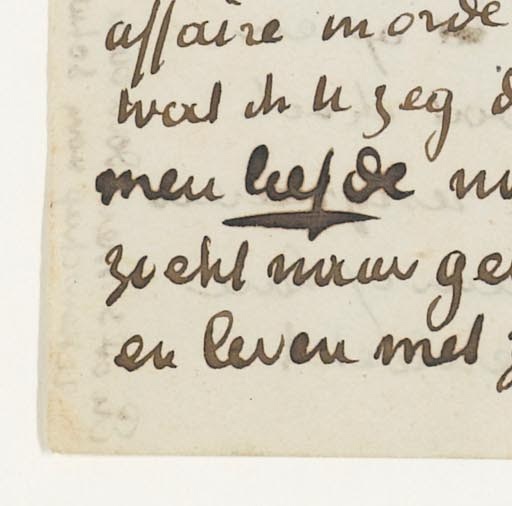 affaire in orde
wat ik u zeg d
men liefde ni
zoekt maar ge
en leven met z